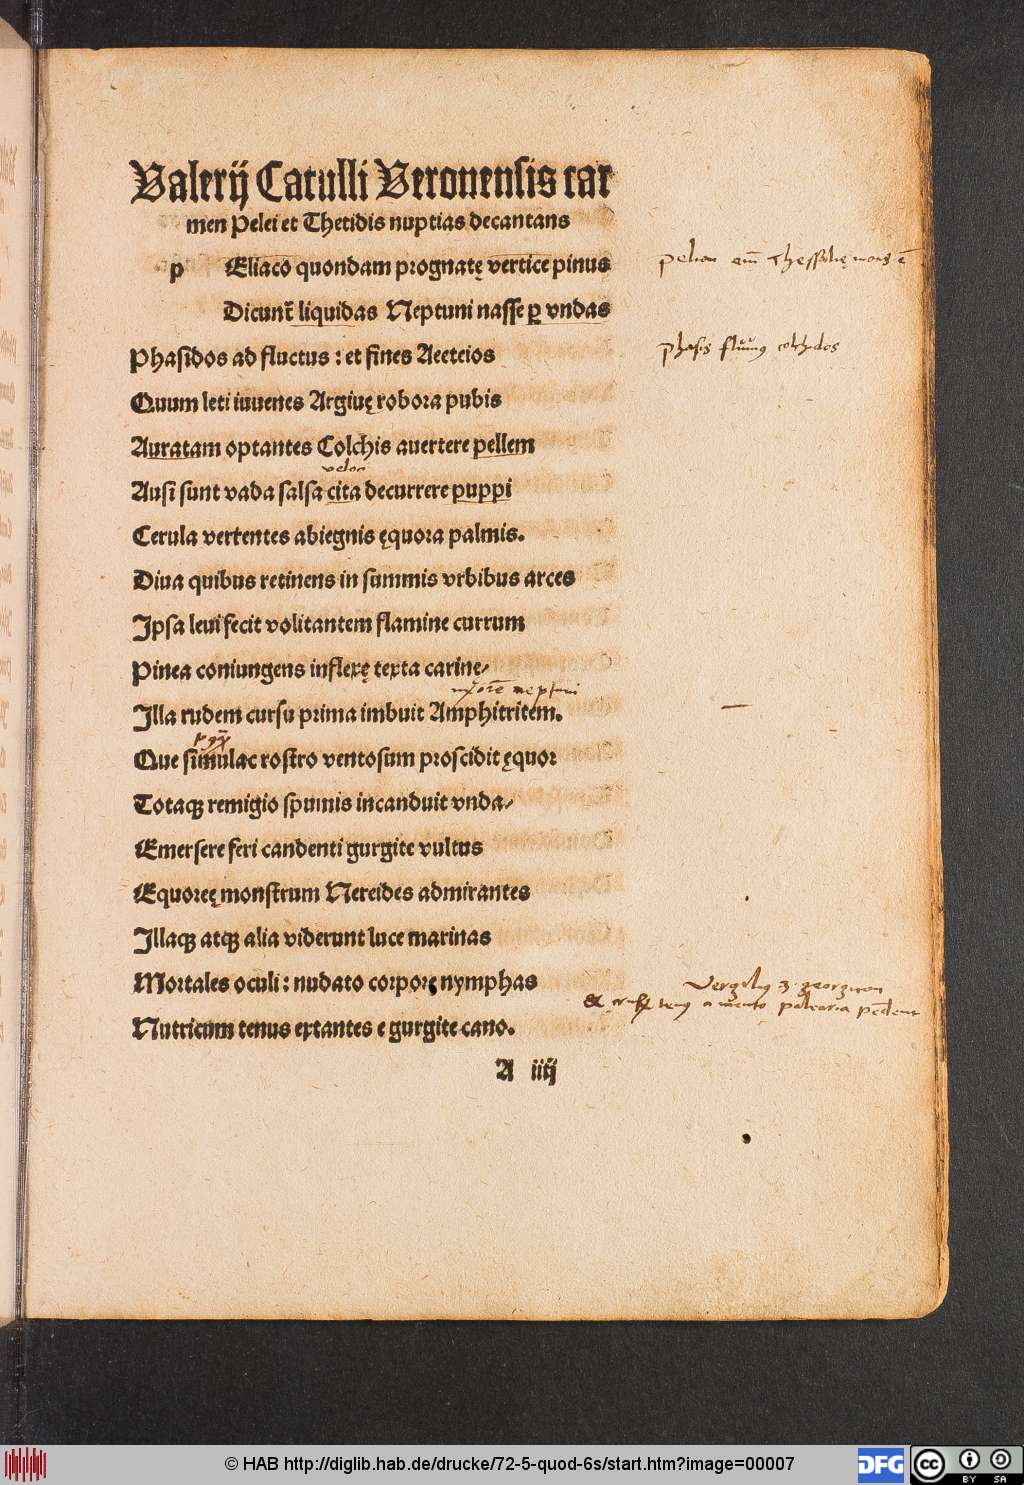 Valerij Catulli Veronensis car
men Pelei et Thetidis nuptias decantans
p Eliaco quondam prognatę vertice pinus
pelion em̄ Thessalię mons ē
Dicunt̃ liquidas Neptuni nasse ꝑ vndas
Phasidos ad fluctus : et fines Aeeteios
phasis fluuiꝰ colchidos
Quum leti iuuenes Argiuę robora pubis
Auratam optantes Colchis auertere pellem
veloci
Ausi sunt vada salsa cita decurrere puppi
Cerula verrentes abiegnis ęquora palmis.
Diua quibus retinens in summis vrbibus arces
Ipsa leui fecit volitantem flamine currum
Pinea coniungens inflexę texta carine/
vxorē neptuni
Illa rudem cursu prima imbuit Amphitritem.
Que simulac rostro ventosum proscidit ęquor
Totaqꝫ remigio spumis incanduit vnda/
Emersere feri candenti gurgite vultus
Equoreę monstrum Nereides admirantes
Illaqꝫ atqꝫ alia viderunt luce marinas
Mortales oculi : nudato corpore nymphas
Vergiliꝰ 3 georgicon
Et crurū tenꝰ a mento palearia pēdent
Nutricum tenus extantes e gurgite cano.
A iiij
© HAB http://diglib.hab.de/drucke/72-5-quod-6s/start.htm?image=00007
DFG
cc
BY SA